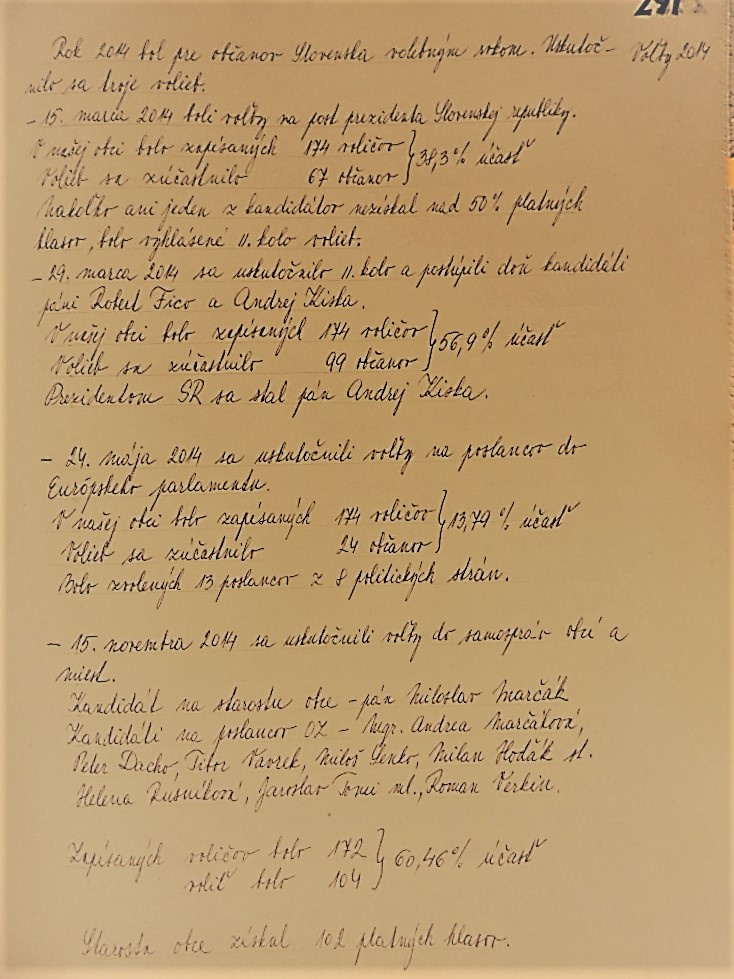 Rok 2014 bol pre občanov Slovenska volebným rokom. Uskutoč- Voľby 2014
nilo sa troje volieb.
- 15. marca 2014 boli voľby na post prezidenta Slovenskej republiky.
V našej obci bolo zapísaných 174 voličov } 38,3% účasť
Volieb sa zúčastnilo 67 občanov
Nakoľko ani jeden z kandidátov nezískal nad 50% platných
hlasov, bolo vyhlásené II. kolo volieb.
- 29. marca 2014 sa uskutočnilo II. kolo a postúpili doň kandidáti
páni Robert Fico a Andrej Kiska.
V našej obci bolo zapísaných 174 voličov } 56,9% účasť
Volieb sa zúčastnilo 99 občanov
Prezidentom SR sa stal pán Andrej Kiska.
- 24. mája 2014 sa uskutočnili voľby na poslancov do
Európskeho parlamentu.
V našej obci bolo zapísaných 174 voličov } 13,79 % účasť
Volieb sa zúčastnilo 24 občanov
Bolo zvolených 13 poslancov z 8 politických strán.
- 15. novembra 2014 sa uskutočnili voľby do samospráv obcí a
miest.
Kandidát na starostu obce - pán Miloslav Marčák
Kandidáti na poslancov OZ - Mgr. Andrea Marčáková,
Peter Dacho, Tibor Vavrek, Miloš Lenko, Milan Hodák st.
Helena Rusniková, Jaroslav ml., Roman Verkin.
Zapísaných voličov bolo 172 } 60,46% účasť
voliť bolo 104
Starosta obce získal 102 platných hlasov.